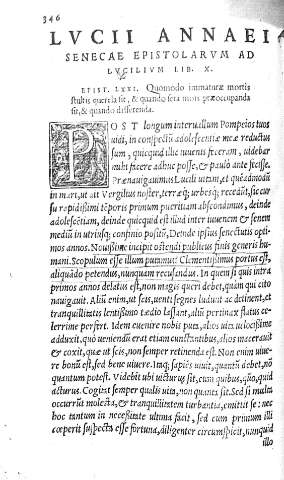 346
LVCII ANNAEI
SENECAE EPISTOLARVM AD
LVCILIVM LIB. X.
EPIST. LXXI. Quomodo immaturæ mortis
stultis querela sit, & quando sera mors præoccupanda
sit, & quando differenda.
POST longum interuallum Pompeios tuos
uidi, in conspectũ adolescentiæ meæ reductus
sum, quicquid illic iuuenis feceram, uidebar
mihi facere adhuc posse, & paulò ante fecisse.
Prænauigauimus Lucili uitam, et quẽadmodũ
in mari, ut ait Vergilius noster, terræq; urbesq; recedũt, sic cur
su rapidissimi tẽporis primùm pueritiam abscondimus, deinde
adolescẽtiam, deinde quicquid est illud inter iuuenem & senem
medium in utriusq; confinio positũ, Deinde ipsius senectutis opti
mos annos. Nouissimè incipit ostendi publicus finis generis hu=
mani. Scopulum esse illum putamus? Clementissimus portus est,
aliquãdo petendus, nunquam recusandus. In quem si quis intra
primos annos delatus est, non magis queri debet, quàm qui citò
nauigauit. Aliũ enim, ut scis, uenti segnes ludunt ac detinent, et
tranquillitatis lentissimæ tædio lassant, aliũ pertinax flatus ce=
lerrime perfert. Idem euenire nobis puta, alios uita uelocissimè
adduxit, quò ueniendũ erat etiam cunctantibus, alios macerauit
& coxit, quæ ut scis, non semper retinenda est. Non enim uiue=
re bonũ est, sed bene uiuere. Itaq; sapiẽs uiuit, quantũ debet, nõ
quantum potest. Videbit ubi uicturus sit, cum quibus, quõ, quid
acturus. Cogitat semper qualis uita, non quanta sit. Sed si multa
occurrũt molesta, & tranquillitatem turbantia, emittit se: nec
hoc tantum in necessitate ultima facit, sed cum primum illi
cœperit suspecta esse fortuna, diligenter circumspicit, nunquid
illo